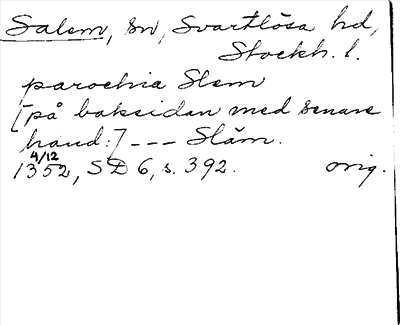 Salem, sn, Svartlösa hd,
Stockh. l.
parochia Slem
[på baksidan med senare
hand:] --- Släm.
4/12
1352, SD 6, s. 392. orig.